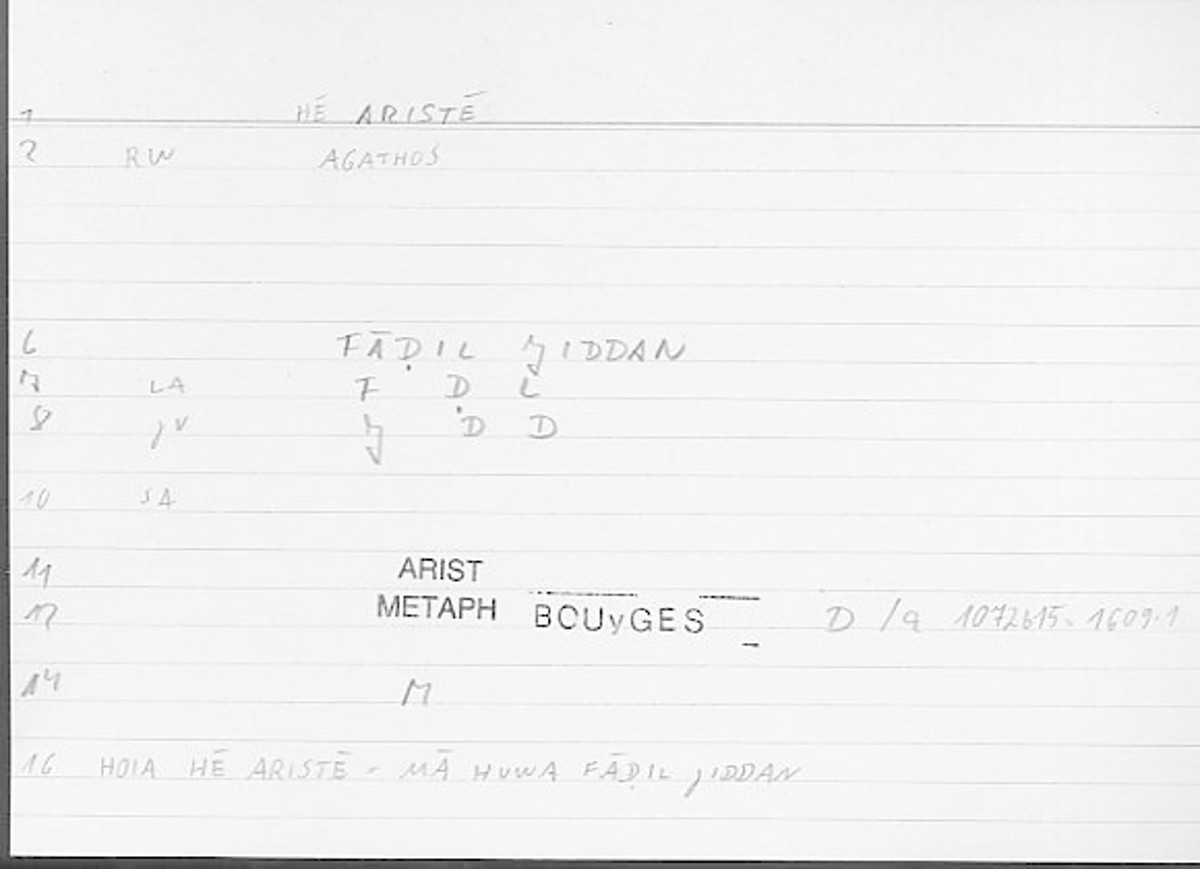 1 HĒ ARISTĒ
2 RW AGATHOS
6 FĀḌIL JIDDAN
7 LA F Ḍ L
8 JV J D D
10 SA
11 ARIST
12 METAPH BOUyGES D /a 1072b15 - 1609.1
14 M
16 HOIA HĒ ARISTĒ - MĀ HUWA FĀḌIL JIDDAN